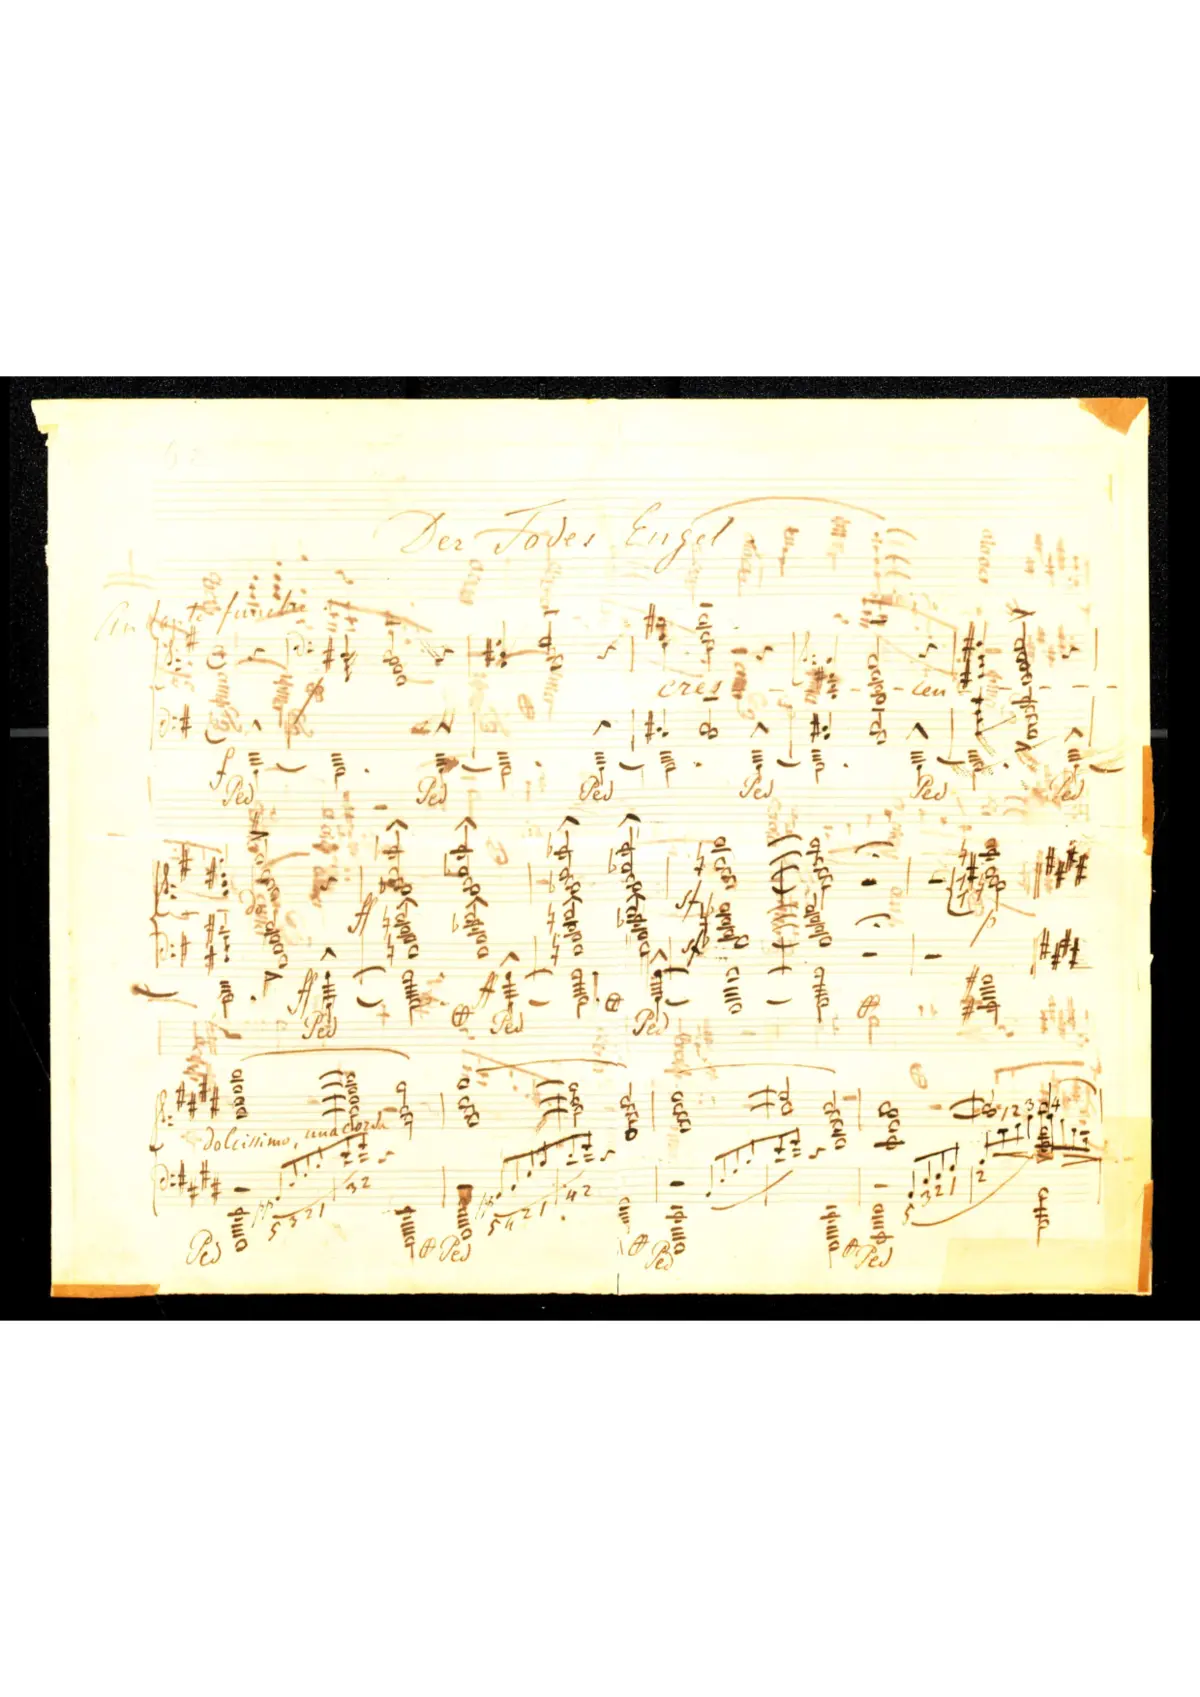 Der Todes Engel
Andante funebre
cres - - - cen - - -
f
Ped Ped Ped Ped Ped Ped
ff
sf
p
ff ff sf
Ped Ped Ped
1 2 3 2 4
dolcissimo, una corda
3 2
4 2
3 2 1 2
pp 5 3 2 1
5 4 2 1
5
Ped Ped Ped Ped